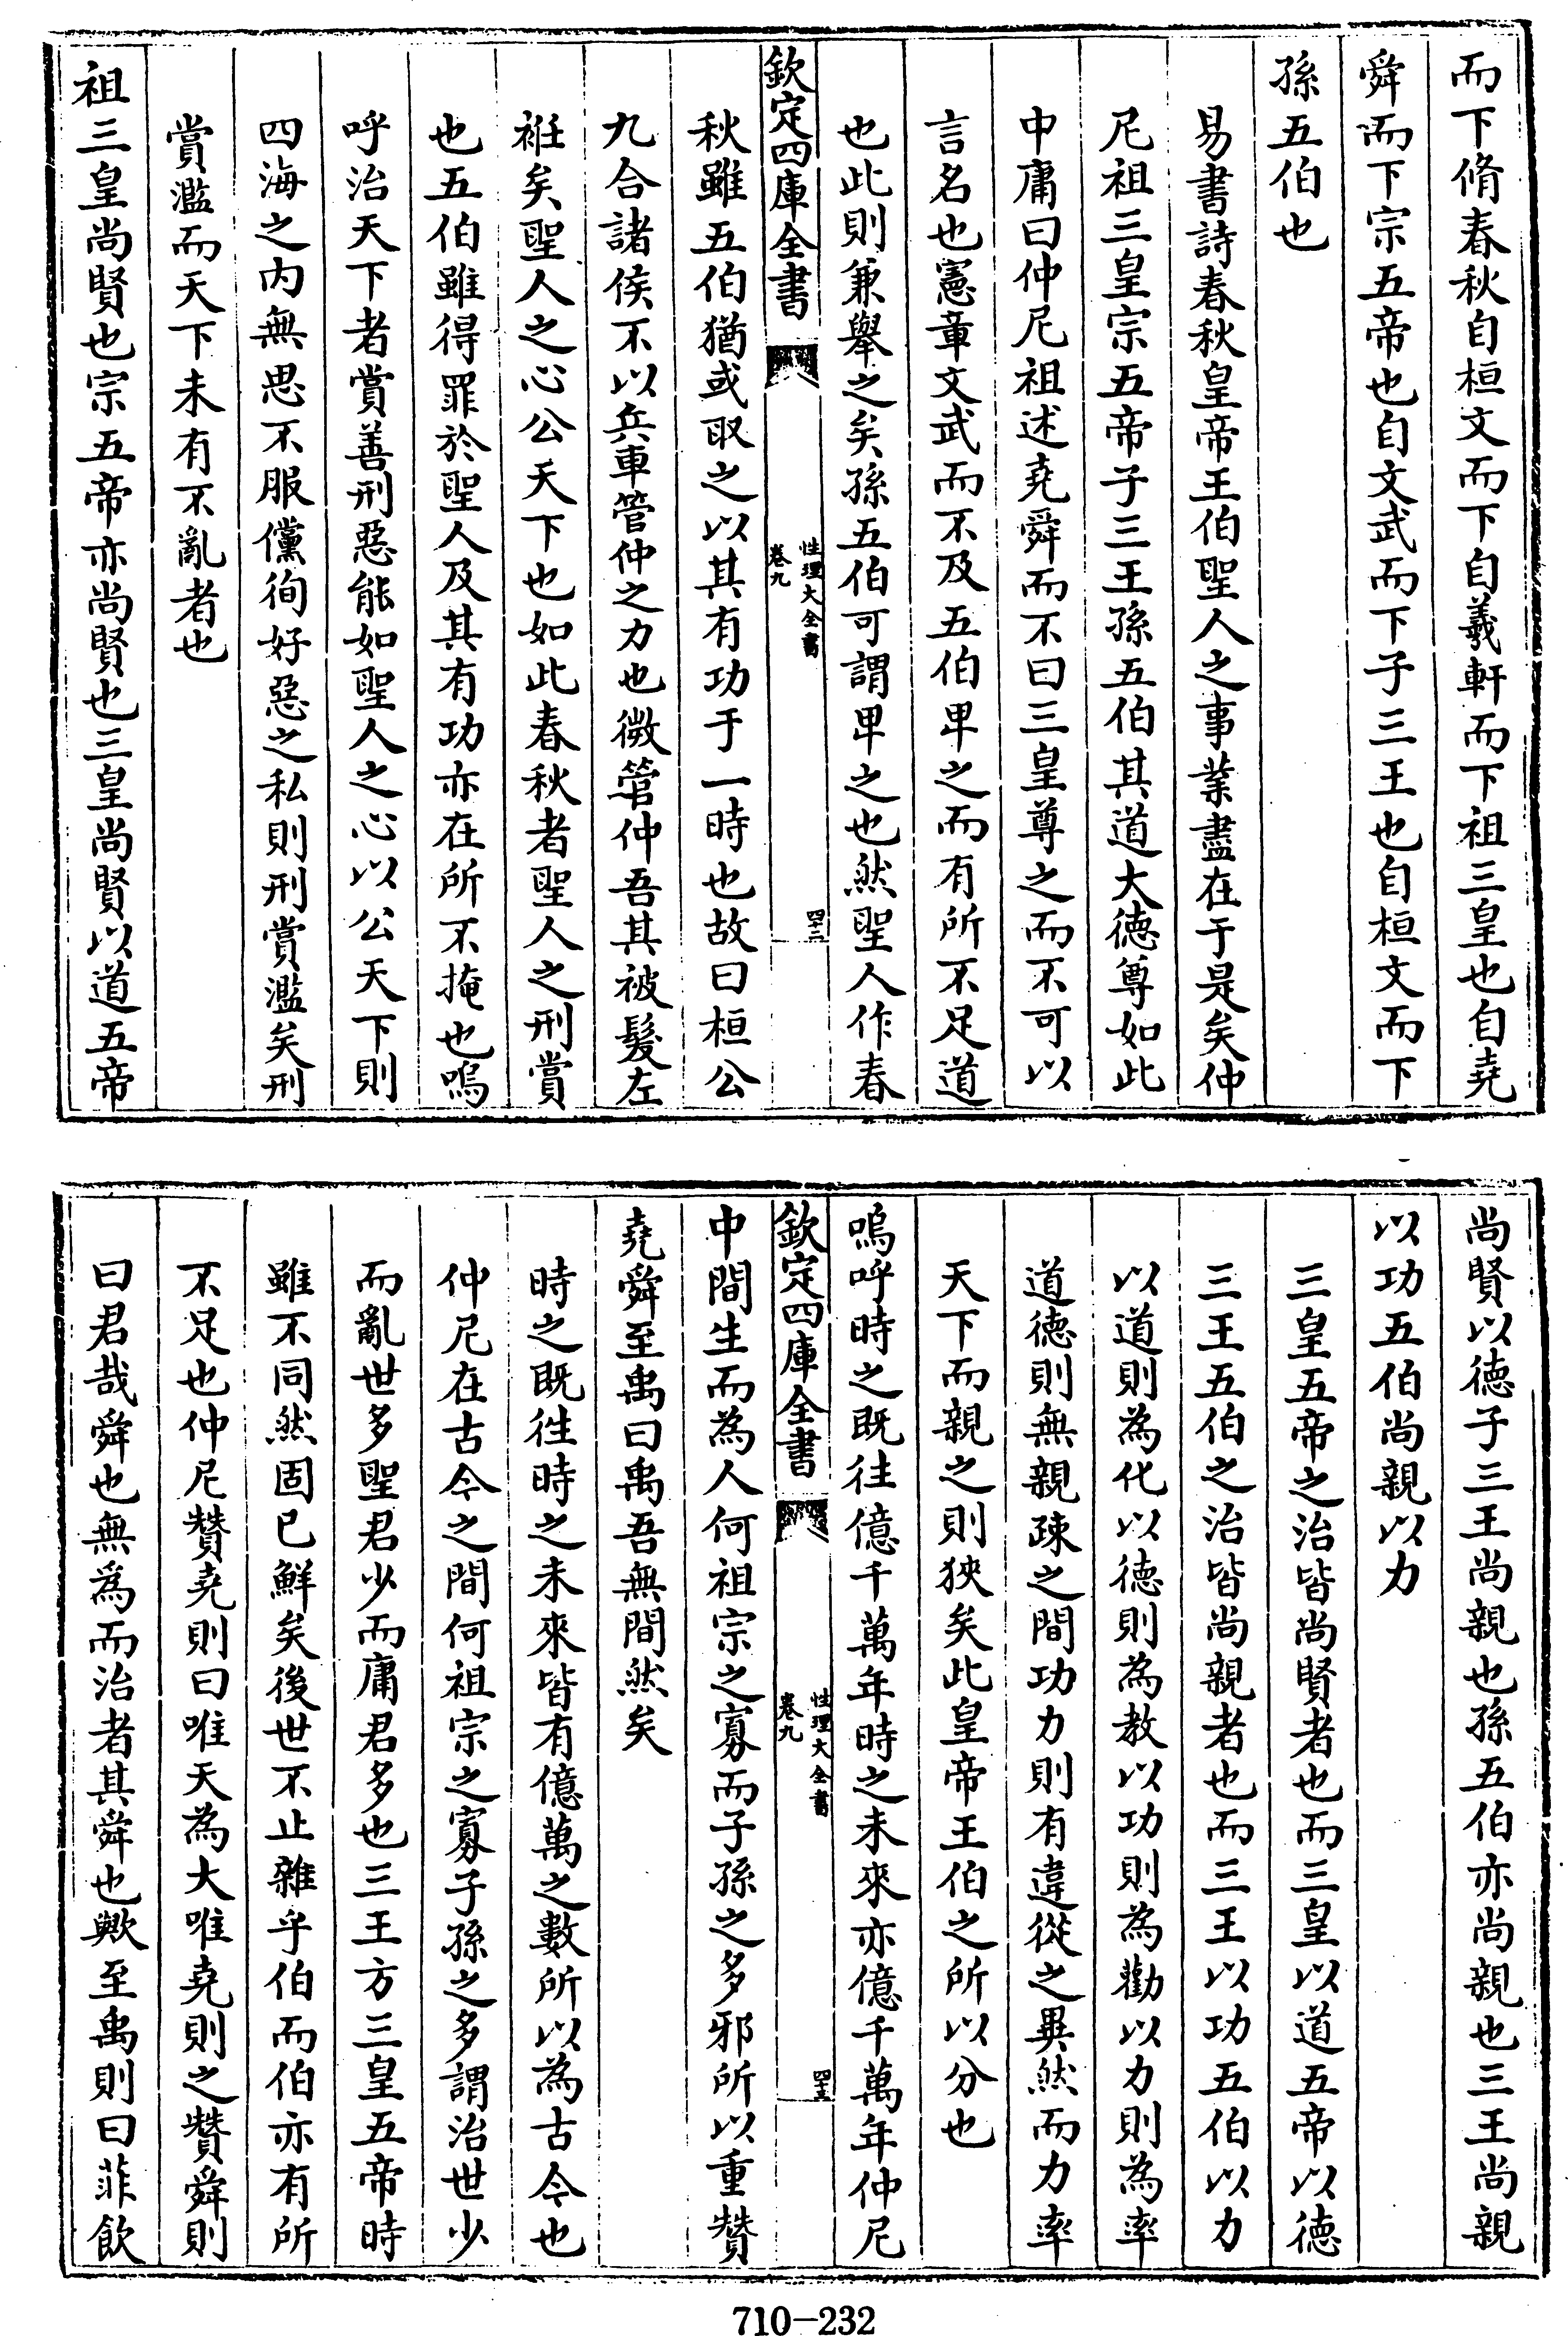 而下脩春秋自桓文而下自羲軒而下祖三皇也自堯
舜而下宗五帝也自文武而下子三王也自桓文而下
孫五伯也
易書詩春秋皇帝王伯聖人之事業盡在于是矣仲
尼祖三皇宗五帝子三王孫五伯其道大德尊如此
中庸曰仲尼祖述堯舜而不曰三皇尊之而不可以
言名也憲章文武而不及五伯卑之而有所不足道
也此則兼舉之矣孫五伯可謂卑之也然聖人作春
欽定四庫全書
性理大全書
卷九
四十三
秋雖五伯猶或取之以其有功于一時也故曰桓公
九合諸侯不以兵車管仲之力也微管仲吾其被髮左
袵矣聖人之心公天下也如此春秋者聖人之刑賞
也五伯雖得罪於聖人及其有功亦在所不掩也嗚
呼治天下者賞善刑惡能如聖人之心以公天下則
四海之內無思不服儻徇好惡之私則刑賞濫矣刑
賞濫而天下未有不亂者也
祖三皇尚賢也宗五帝亦尚賢也三皇尚賢以道五帝
尚賢以德子三王尚親也孫五伯亦尚親也三王尚親
以功五伯尚親以力
三皇五帝之治皆尚賢者也而三皇以道五帝以德
三王五伯之治皆尚親者也而三王以功五伯以力
以道則為化以德則為教以功則為勸以力則為率
道德則無親疎之間功力則有違從之異然而力率
天下而親之則狹矣此皇帝王伯之所以分也
嗚呼時之既往億千萬年時之未來亦億千萬年仲尼
欽定四庫全書
性理大全書
卷九
中間生而為人何祖宗之寡而子孫之多邪所以重贊
堯舜至禹曰禹吾無間然矣
時之既徃時之未來皆有億萬之數所以為古今也
仲尼在古今之間何祖宗之寡子孫之多謂治世少
而亂世多聖君少而庸君多也三王方三皇五帝時
雖不同然固已鮮矣後世不止雜乎伯而伯亦有所
不足也仲尼贊堯則曰唯天為大唯堯則之贊舜則
曰君哉舜也無為而治者其舜也歟至禹則曰菲飲
710-232